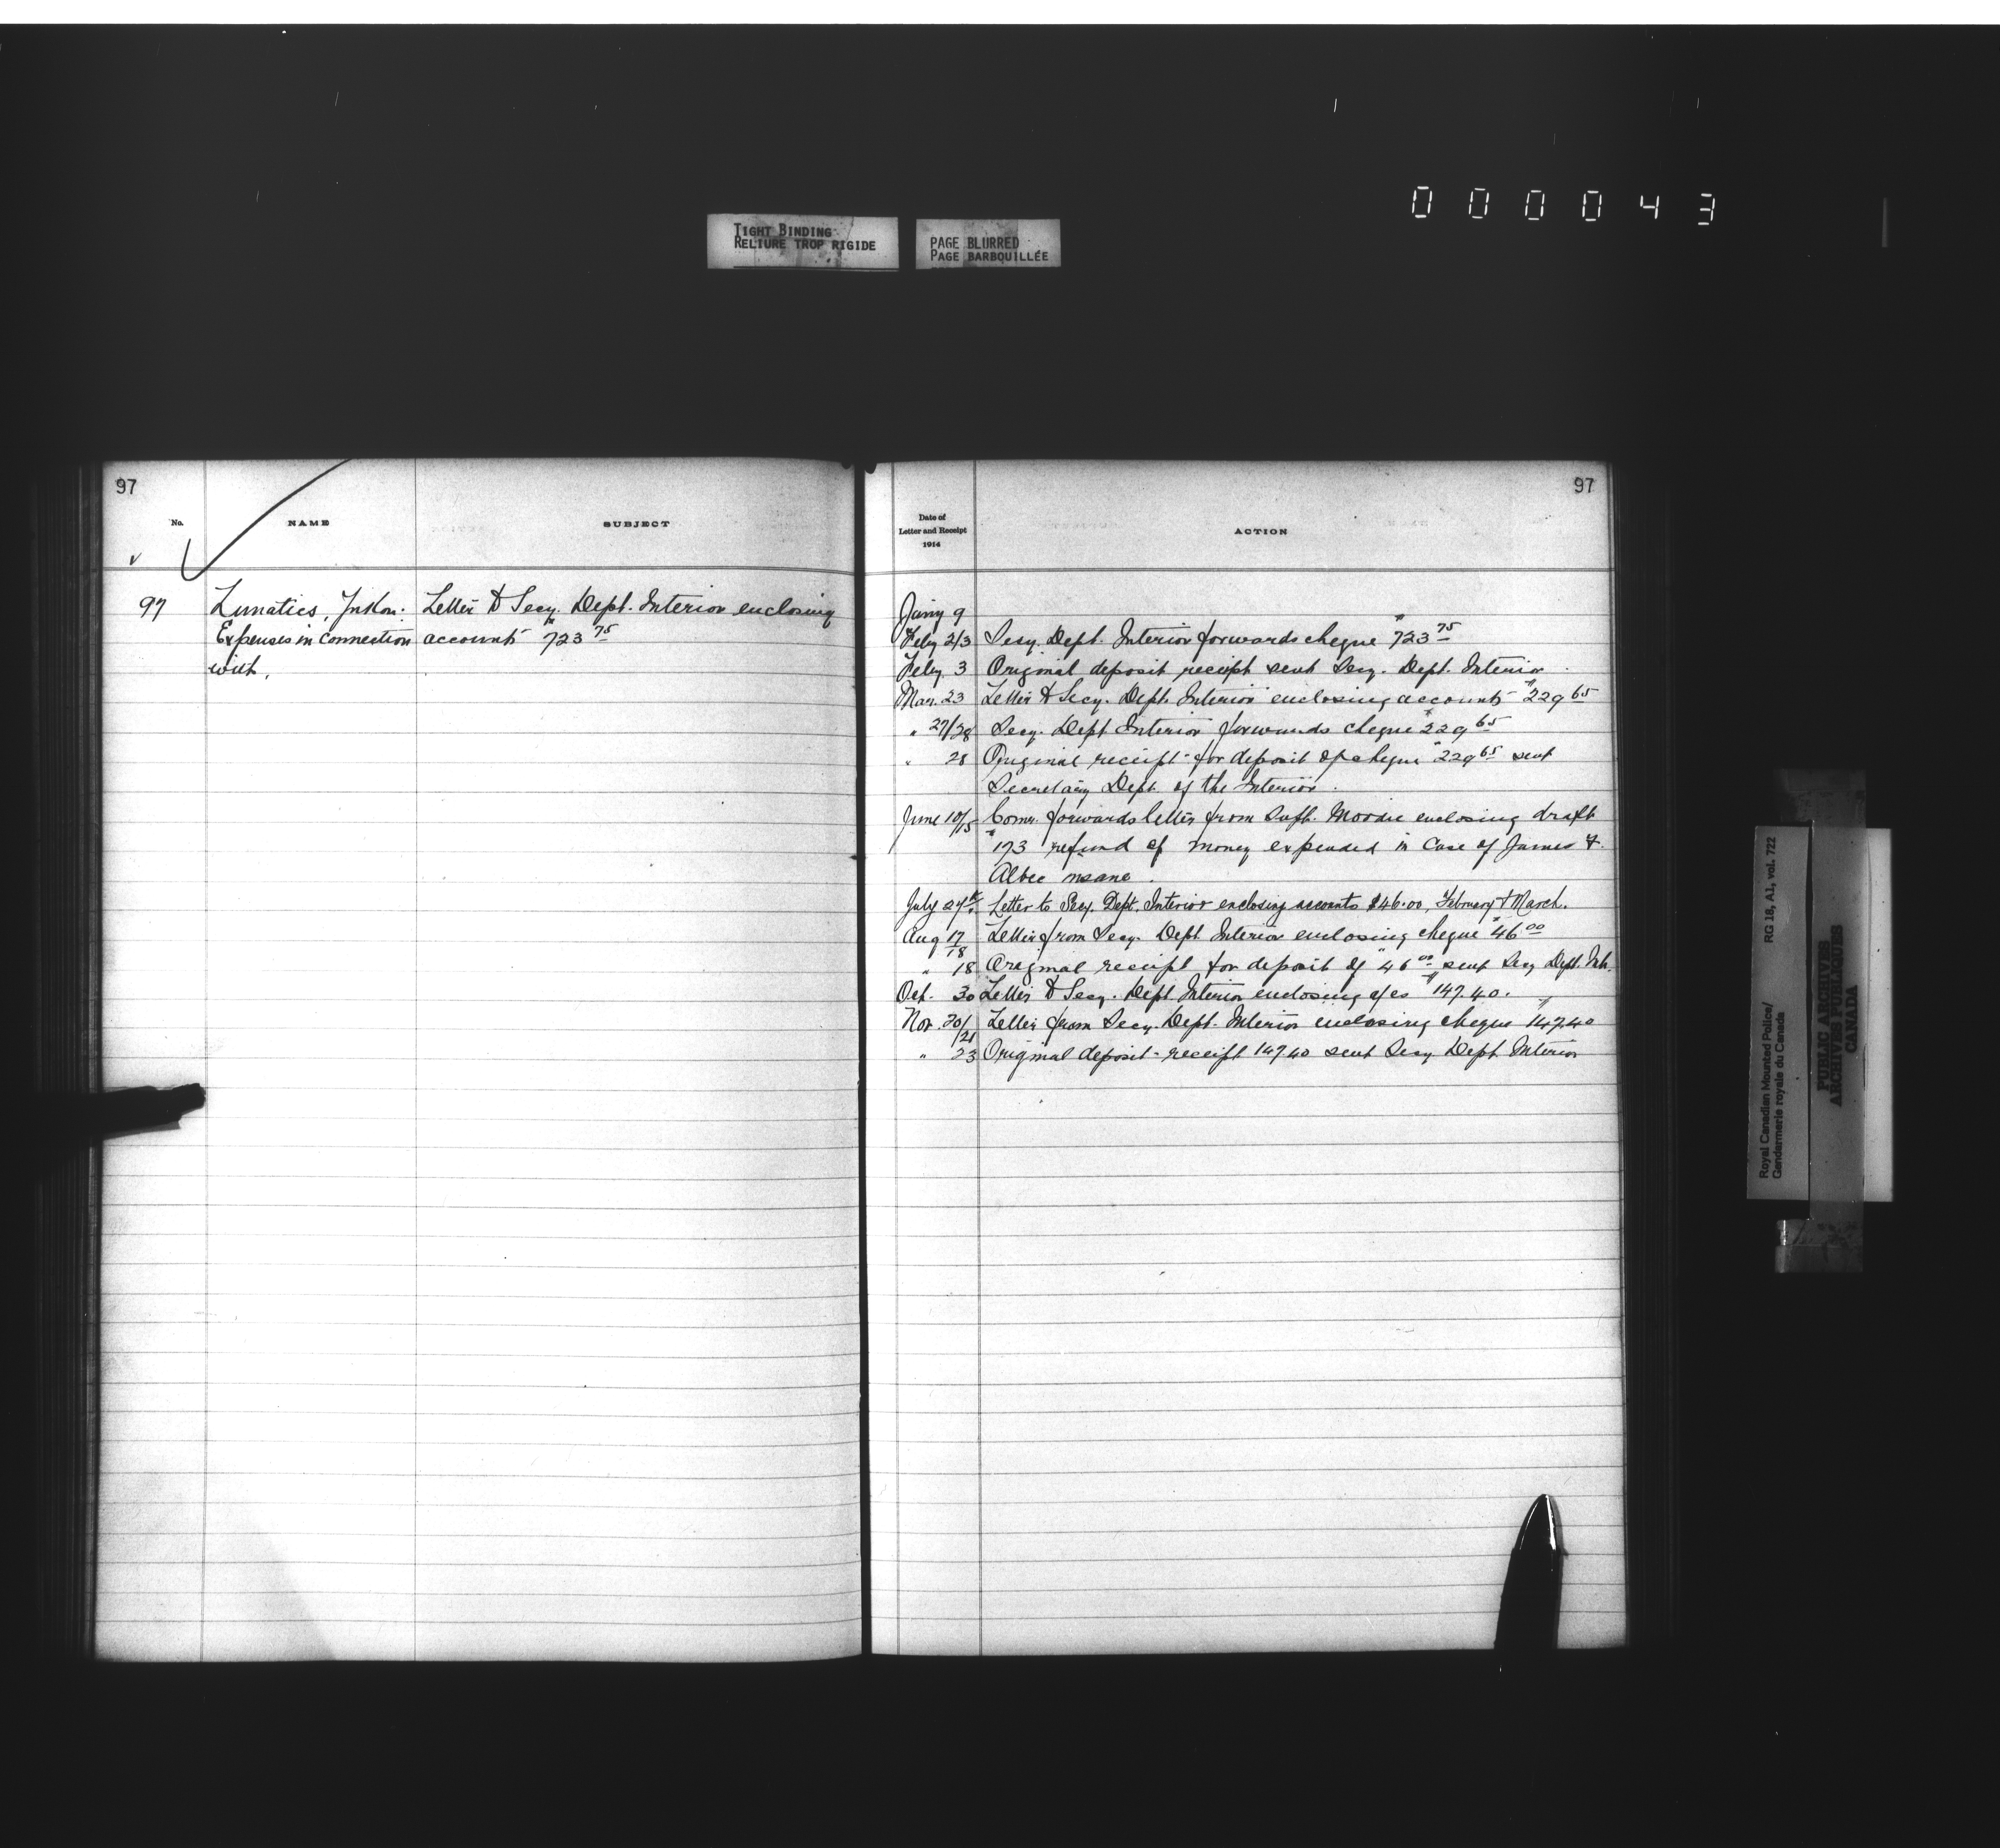 0 0 0 0 4 3
TIGHT BINDING
RELIURE TROP RIGIDE
PAGE BLURRED
PAGE BARBOUILLÉE
97
No.
NAME
SUBJECT
97
Lunatics, Yukon.
Expenses in connection
with.
Letter to Secy. Dept. Interior enclosing
accounts $723 75
97
Date of
Letter and Receipt
1914
ACTION
Jany 9
Feby 2/3 Secy. Dept. Interior forwards cheque $723 75
Feby 3 Original deposit receipt sent Secy. Dept. Interior.
Mar. 23 Letter to Secy. Dept. Interior enclosing accounts $229 65
" 27/28 Secy. Dept Interior forwards cheque $229 65
" 28 Original receipt for deposit of cheque $229 65 sent
Secretary Dept. of the Interior.
June 10/15 Comr. forwards letter from Supt. Moodie enclosing draft
$173 refund of money expended in case of James
Albee insane.
July 27th. Letter to Secy. Dept. Interior enclosing accounts $46.00, February & March.
Aug 17/18 Letter from Secy. Dept. Interior enclosing cheque $46 00
" 18 Original receipt for deposit of $46 00 sent Secy Dept. Int.
Oct. 30 Letter to Secy. Dept. Interior enclosing a/cs $147.40.
Nov. 20/21 Letter from Secy. Dept. Interior enclosing cheque $147.40
" 23 Original deposit receipt 147.40 sent Secy Dept. Interior
Royal Canadian Mounted Police/
Gendarmerie royale du Canada
RG 18, A1, vol. 722
PUBLIC ARCHIVES
ARCHIVES PUBLIQUES
CANADA